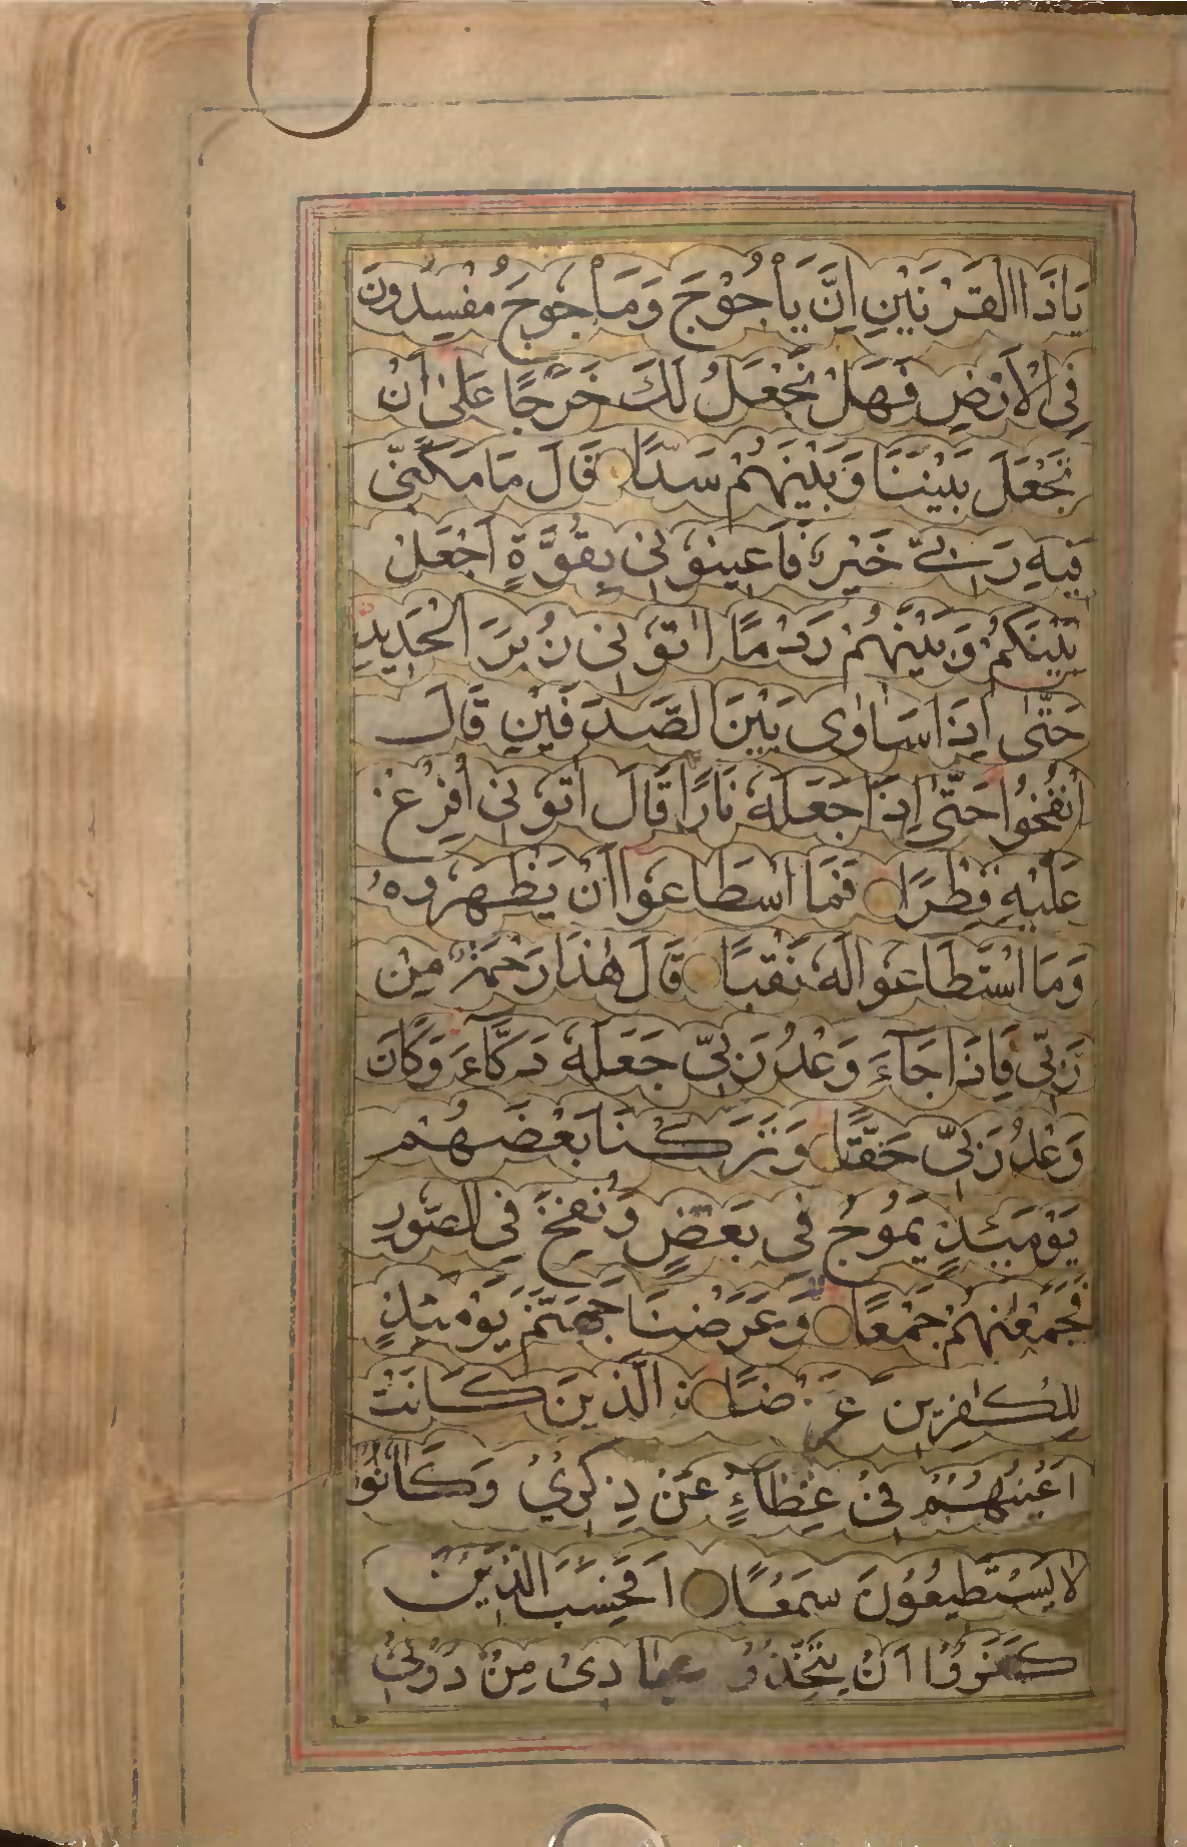 يَاذَا الْقَرْنَيْنِ اِنَّ يَأْجُوْجَ وَمَأْجُوجَ مُفْسِدُونَ
فِى الْاَرْضِ فَهَلْ نَجْعَلُ لَكَ خَرْجًا عَلٰى اَنْ
نَجْعَلَ بَيْنَنَا وَبَيْنَهُمْ سَدًّا قَالَ مَا مَكَّنِّى
فِيهِ رَبِّى خَيْرٌ فَاَعِينُوْنِى بِقُوَّةٍ اَجْعَلْ
بَيْنَكُمْ وَبَيْنَهُمْ رَدْمًا اٰتُوْنِى زُبَرَ الْحَدِيْدِ
حَتّٰى اِذَا سَاوٰى بَيْنَ الصَّدَفَيْنِ قَالَ
انْفُخُوا حَتّٰى اِذَا جَعَلَهٗ نَارًا قَالَ اٰتُوْنِى اُفْرِغْ
عَلَيْهِ قِطْرًا فَمَا اسْطَاعَوا اَنْ يَظْهَرُوهُ
وَمَا اسْتَطَاعَوا لَهٗ نَقْبًا قَالَ هٰذَا رَحْمَةٌ مِنْ
رَبِّى فَاِذَا جَآءَ وَعْدُ رَبِّىْ جَعَلَهٗ دَكَّآءَ وَكَانَ
وَعْدُ رَبِّىْ حَقًّا وَتَرَكْنَا بَعْضَهُمْ
يَوْمَئِذٍ يَمُوْجُ فِى بَعْضٍ وَنُفِخَ فِى الصُّوْرِ
فَجَمَعْنٰهُمْ جَمْعًا وَعَرَضْنَا جَهَنَّمَ يَوْمَئِذٍ
لِلْكٰفِرِينَ عَرْضًا الَّذِيْنَ كَانَتْ
اَعْيُنُهُمْ فِىْ غِطَآءٍ عَنْ ذِكْرِىْ وَكَانُوْا
لَا يَسْتَطِيْعُوْنَ سَمْعًا اَفَحَسِبَ الَّذِيْنَ
كَفَرُوْا اَنْ يَتَّخِذُوْا عِبَادِىْ مِنْ دُوْنِىْ